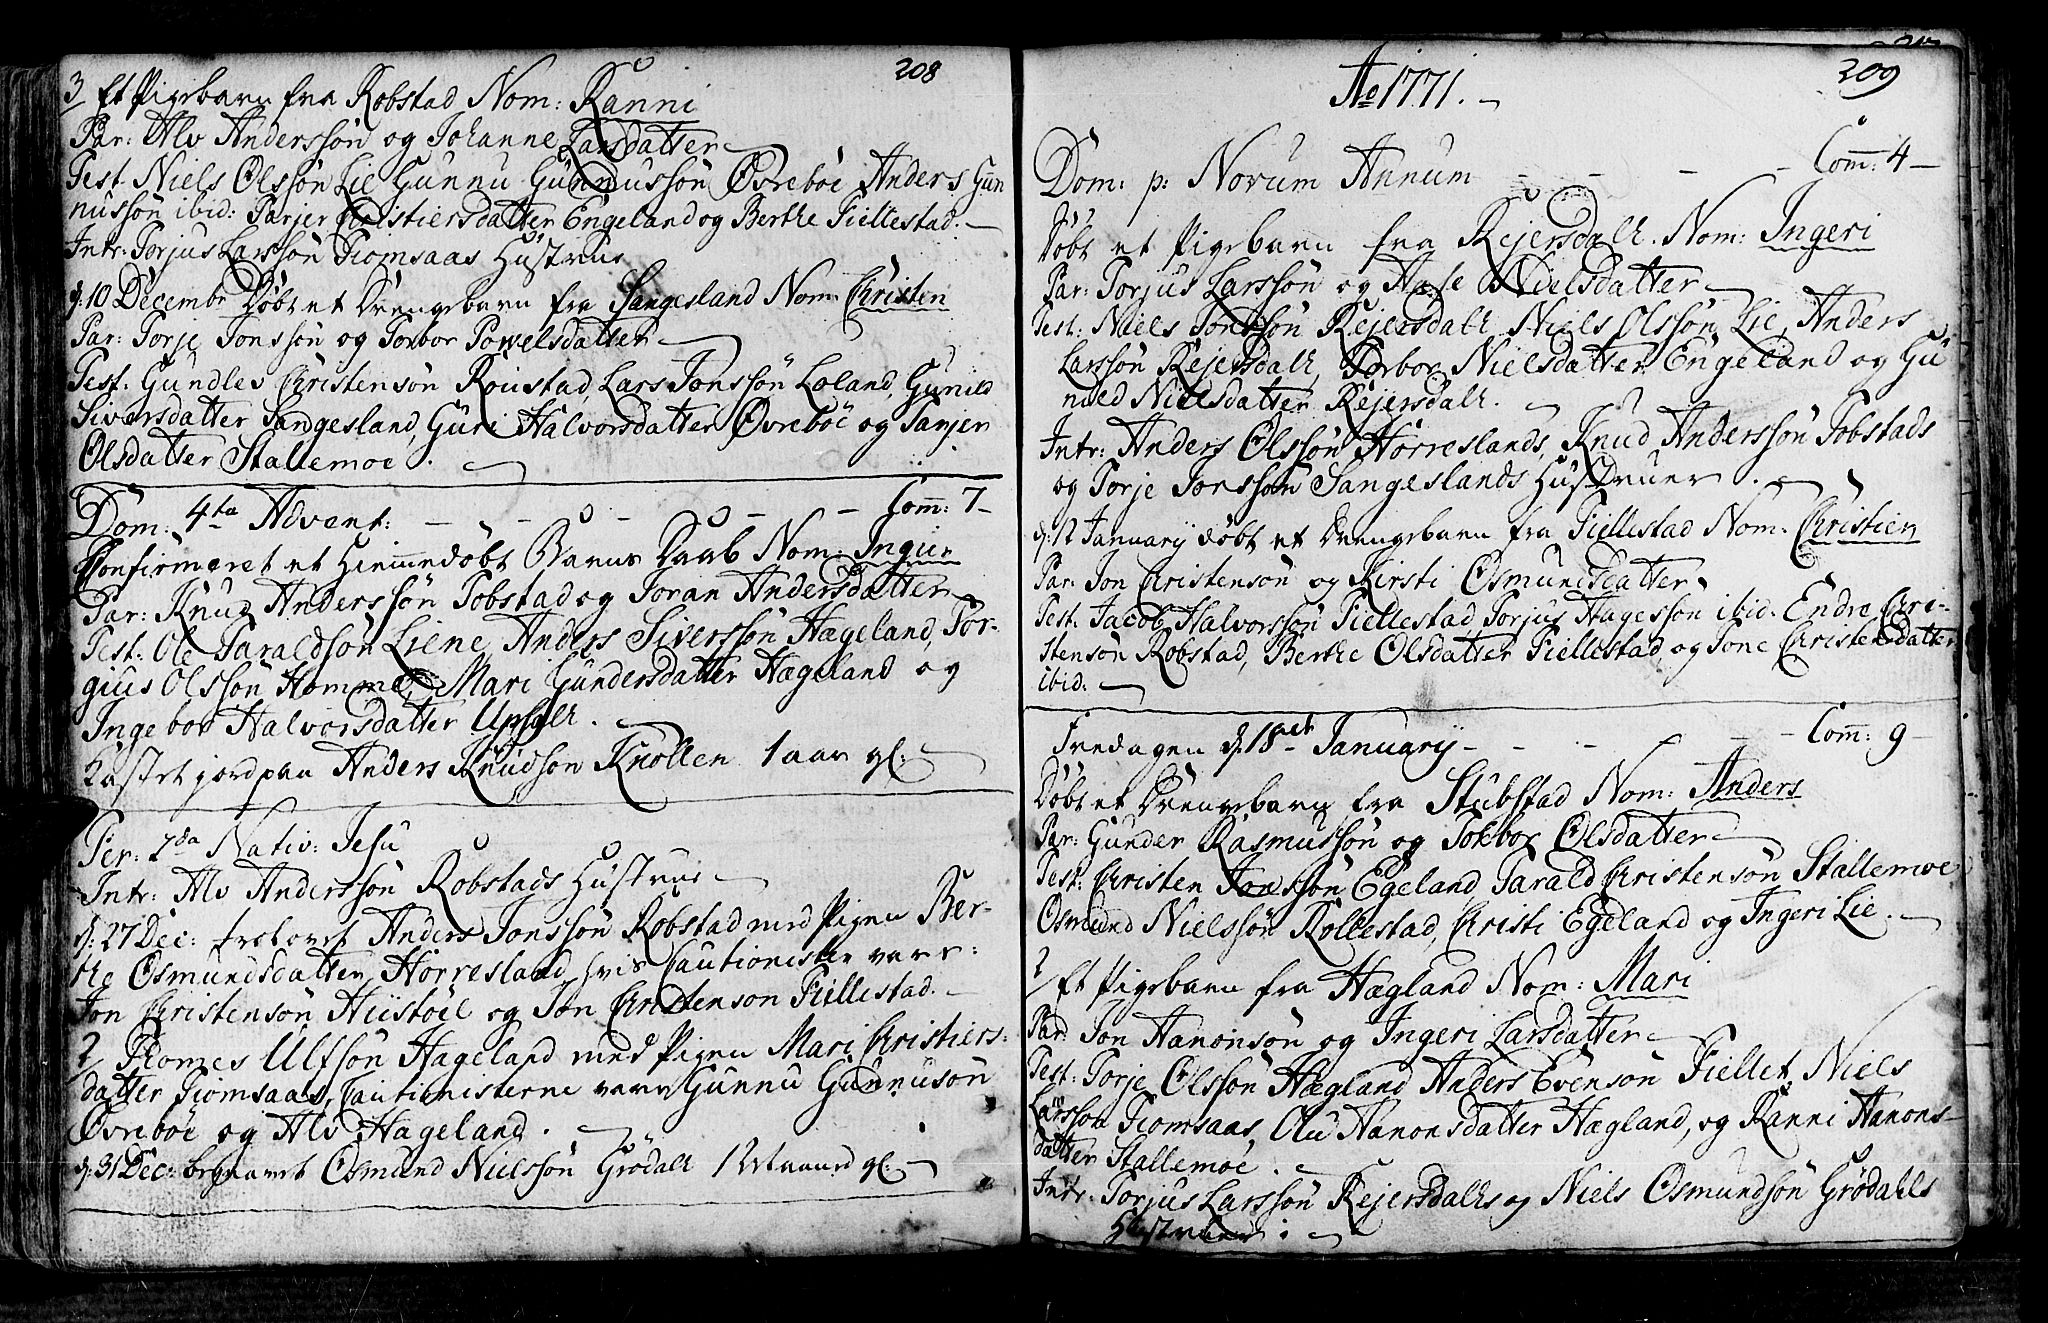 208
3/ Et Pigebarn fra Robstad Nom: Ranni
Par: Alv Anderssøn og Johanne Larsdatter
Test. Niels Olssøn Lie Gunnu Gunnussøn Øvrebøe Anders Gun
nussøn ibid: Tarjer Christiersdatter Engeland og Berthe Fiellestad.
Intr: Torjus Larssøn Fiomsaas Hustrue
d: 10 Decembr Døbt et Drengebarn fra Sangesland Nom: Christen
Par: Torje Jonssøn og Torbor Powelsdatter
Test: Gundlev Christensøn Roustad, Lars Jonssøn Loland, Gunild
Siversdatter Sangesland, Guri Halvorsdatter Øvrebøe og Tarjer
Olsdatter Stallemoe.
Dom: 4ta Advent: Com: 7
Confirmeret et Hiemmedøbt Barns Daab Nom: Ingier
Par: Knud Anderssøn Tobstad og Joran Andersdatter
Test: Ole Taraldsøn Liene, Anders Siverssøn Hægeland, Tor-
gius Olssøn Homme, Mari Gundersdatter Hægeland og
Ingebor Halvorsdatter Upsalh.
Kastet jord paa Anders Knudsøn Knollen 1 aar gl:
Fer: 2da Nativ: Jesu
Intr: Alv Anderssøn Robstads Hustrue
d: 27 Dec: trolovet Anders Jonssøn Robstad med Pigen Ber-
the Osmundsdatter Hørresland, hvis Cautionister vare:
Jon Christensøn Hustøel og Jon Christenson Fiellestad.
2/ Thomes Ulfsøn Hageland med Pigen Mari Christiers:
datter Fiomsaas, Cautionisterne vare Gunnu Gunnusøn
Øvrebøe og Alv Hageland.
d: 31 Dec: begravet Osmund Nielssøn Grødalh gl:
209
Ao 1771.
Dom: p: Novum Annum Com: 4
Døbt et Pigebarn fra Rejersdalh. Nom: Ingeri
Par: Torjus Larssøn og Aase Nielsdatter
Test: Niels Jonssøn Rejersdalh, Niels Olssøn Lie, Anders
Larssøn Rejersdalh, Torbor Nielsdatter Engeland og Gu
nild Nielsdatter Rejersdalh.
Intr: Anders Olssøn Hørreslands, Knud Anderssøn Tobstads
og Torje Jonssøn Sangeslands Hustruer.
d: January døbt et Drengebarn fra Fiellestad Nom: Christien
Par: Jon Christensøn og Kirsti Osmundsdatter
Test. Jacob Halvorssøn Fiellestad Torjus Hagessøn ibid. Endre Chri-
stensøn Robstad, Berthe Olsdatter Fiellestad og Tone Christensdatter
ibid:
Fredagen d: 18de January Com: 9
Døbt et Drengebarn fra Stubstad Nom: Anders
Par: Gunder Rasmussøn og Tolbor Olsdatter
Test: Christen Jonssøn Egeland, Tarald Christensøn Stallemoe
Osmund Nielssøn Rollestad, Christi Egeland og Ingeri Lie.
2/ Et Pigebarn fra Hægland Nom: Mari
Par: Jon Hanonsøn og Ingeri Larsdatter
Test: Torje Olssøn Hægland Anders Evensøn Fiellet, Niels
Larssøn Fiomsaas, Olu Hanonsdatter Hægland, og Ranni Hanons-
datter Stallemoe.
Intr: Torjus Larssøn Rejersdalhs og Niels Osmundsøn Grødahls
Hustruer.